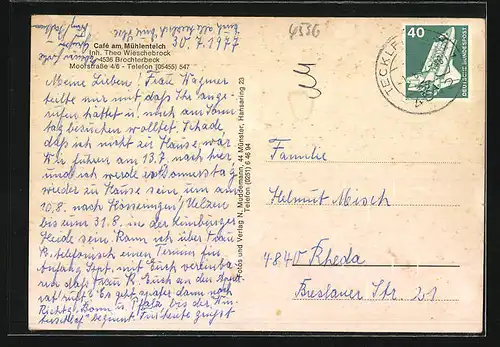 Café am Mühlenteich
Inh. Theo Wieschebrock
4536 Brochterbeck
Moorstraße 4/6 - Telefon (05455) 547
30.7.1977
Meine Lieben! Frau Wagner
teilte mir mit daß Ihr ange-
rufen hättet u. mich am Sonn-
tag besuchen wolltet. Schade,
daß ich nicht zu Hause war.
Wir fuhren am 13.7. nach hier,
und ich werde Donnerstag
wieder zu Hause sein um am
10.8. nach Hösseringen/Uelzen
bis zum 31.8. in der Lüneburger
Heide sein. Kann ich über Frau
W. telefonisch einen Termin für
Anfang Sept. mit Euch vereinba-
ren daß Frau R. Euch an den Appa-
rat ruft? Es geht später dann nach
beginnt
Fotos und Verlag N. Muddemann, 44 Münster, Hansaring 23
Telefon (0251) 6 46 94
4536
40
DEUTSCHE BUNDESPOST
TECKLE
Familie
Helmut Misch
4840 Rheda
Breslauer Str. 21